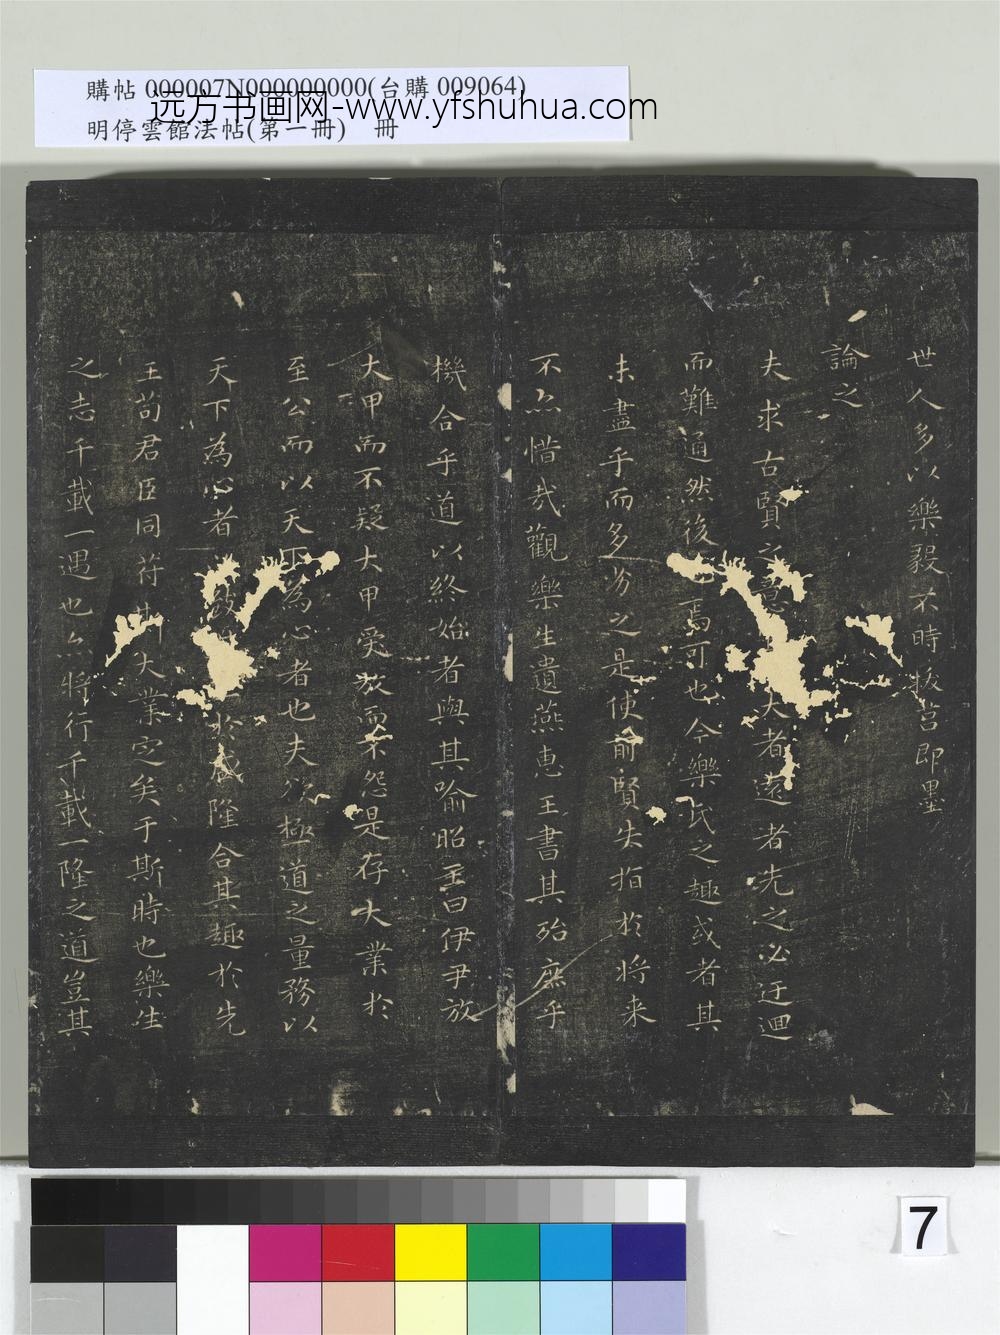 購帖 000007N000000000(台購 009064)
远方书画网-www.yfshuhua.com
明停雲館法帖(第一冊) 冊
世人多以樂毅不時拔莒即墨
論之
夫求古賢之意大者遠者先之必迂迴
而難通然後焉可也今樂氏之趣或者其
未盡乎而多劣之是使前賢失指於将来
不亦惜哉觀樂生遺燕惠王書其殆庶乎
機合乎道以終始者與其喻昭王曰伊尹放
大甲而不疑大甲受放而不怨是存大業於
至公而以天下為心者也夫欲極道之量務以
天下為心者致於盛隆合其趣於先
王苟君臣同符斯大業定矣于斯時也樂生
之志千載一遇也亦將行千載一隆之道豈其
7